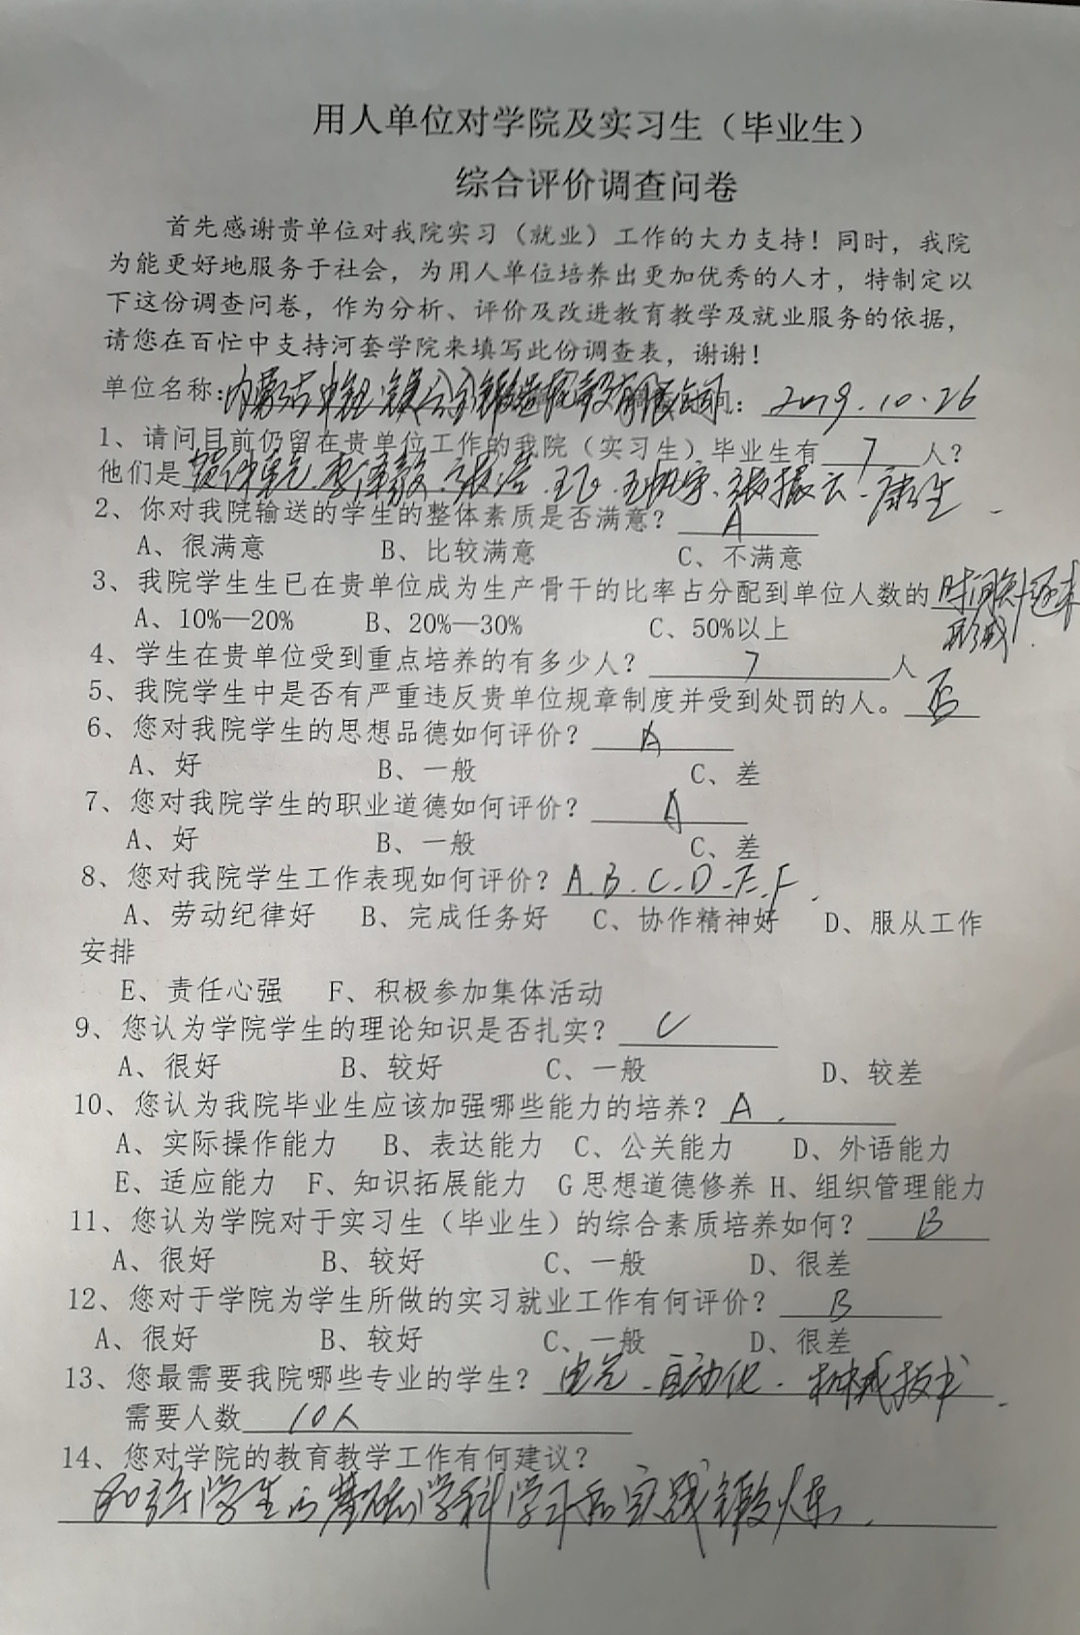 用人单位对学院及实习生（毕业生）
综合评价调查问卷
首先感谢贵单位对我院实习（就业）工作的大力支持！同时，我院
为能更好地服务于社会，为用人单位培养出更加优秀的人才，特制定以
下这份调查问卷，作为分析、评价及改进教育教学及就业服务的依据，
请您在百忙中支持河套学院来填写此份调查表，谢谢！
单位名称：内蒙古 镁合金锻造 有限公司 间： 2019.10.26
1、请问目前仍留在贵单位工作的我院（实习生）毕业生有 7 人？
他们是
2、你对我院输送的学生的整体素质是否满意？ A
A、很满意 B、比较满意 C、不满意
3、我院学生生已在贵单位成为生产骨干的比率占分配到单位人数的 时间短 还未
形成.
A、10%—20% B、20%—30% C、50%以上
4、学生在贵单位受到重点培养的有多少人？ 7 人
5、我院学生中是否有严重违反贵单位规章制度并受到处罚的人。 否
6、您对我院学生的思想品德如何评价？ A
A、好 B、一般 C、差
7、您对我院学生的职业道德如何评价？ A
A、好 B、一般 C、差
8、您对我院学生工作表现如何评价？ A.B.C.D.E.F.
A、劳动纪律好 B、完成任务好 C、协作精神好 D、服从工作
安排
E、责任心强 F、积极参加集体活动
9、您认为学院学生的理论知识是否扎实？ C
A、很好 B、较好 C、一般 D、较差
10、您认为我院毕业生应该加强哪些能力的培养？ A.
A、实际操作能力 B、表达能力 C、公关能力 D、外语能力
E、适应能力 F、知识拓展能力 G 思想道德修养 H、组织管理能力
11、您认为学院对于实习生（毕业生）的综合素质培养如何？ B
A、很好 B、较好 C、一般 D、很差
12、您对于学院为学生所做的实习就业工作有何评价？ B
A、很好 B、较好 C、一般 D、很差
13、您最需要我院哪些专业的学生？ 电气.自动化.机械技术.
需要人数 10人
14、您对学院的教育教学工作有何建议？
加强学生的基础学科学习和实践锻炼.